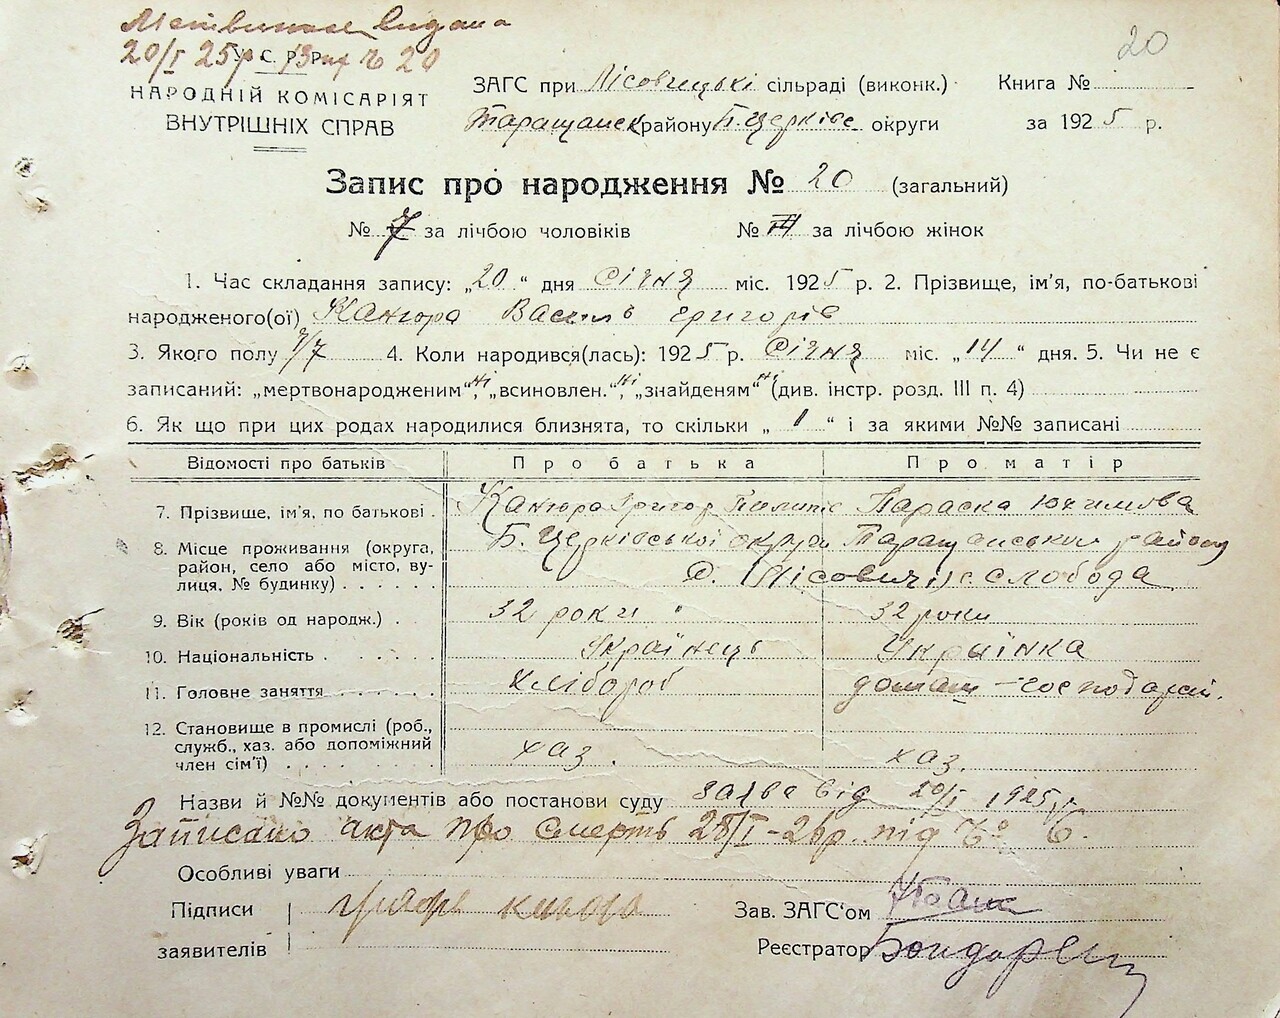 Метвиписе видана
20/I 25р. із № 20
У. С. Р. Р.
НАРОДНІЙ КОМІСАРІЯТ
ВНУТРІШНІХ СПРАВ
20
ЗАГС при Лісовицькі сільраді (виконк.) Книга №
Таращанськ району Б. Церківс округи за 1925 р.
Запис про народження № 20 (загальний)
№ 7 за лічбою чоловіків № за лічбою жінок
1. Час складання запису: „20“ дня Січня міс. 1925 р. 2. Прізвище, ім'я, по-батькові
народженого(ої) Канюра Василь Григорів
3. Якого полу Ч/7 4. Коли народився(лась): 1925 р. Січня міс. „14“ дня. 5. Чи не є
записаний: „мертвонародженим“, ні „всиновлен.“, ні „знайденям“ ні (див. інстр. розд. III п. 4)
6. Як що при цих родах народилися близнята, то скільки „1“ і за якими №№ записані
Відомості про батьків Про батька Про матір
7. Прізвище, ім'я, по батькові Канюра Григор Пилипів Параска Юхимова
8. Місце проживання (округа, Б. Церківської округи Таращанського району
район, село або місто, ву-
лиця, № будинку) Лісовичі слобода
9. Вік (років од народж.) 32 роки 32 роки
10. Національність Українець Українка
11. Головне заняття хлібороб домаш–господарст.
12. Становище в промислі (роб.,
служб., хаз. або допоміжний
член сім'ї) хаз. хаз.
Назви й №№ документів або постанови суду заява від 20/I 1925 р
Записано акта про смерть 28/I-26р. під № 6.
Особливі уваги
Підписи Зав. ЗАГС'ом
заявителів Реєстратор Бондар